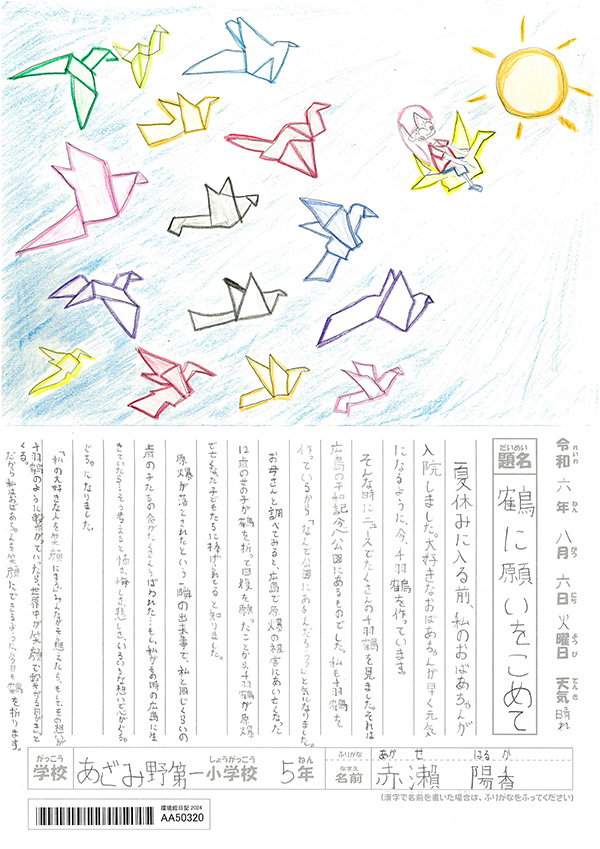 令和六年八月六日火曜日 天気 晴れ
れいわ ねん がつ にち ようび てんき
だいめい
題名 鶴に願いをこめて
夏休みに入る前、私のおばあちゃんが
入院しました。大好きなおばあちゃんが早く元気
になるように、今、千羽鶴を作っています。
そんな時にニュースでたくさんの千羽鶴を見ました。それは
広島の平和記念公園にあるものでした。私も千羽鶴を
作っているから「なんで公園にあるんだろう？」と気になりました。
お母さんと調べてみると、広島で原爆の被害にあい亡くなった
12歳の女の子が鶴を折って回復を願ったことから、千羽鶴が原爆
で亡くなった子どもたちに捧げられてると知りました。
原爆が落とされたという一瞬の出来事で、私と同じくらいの
歳の子たちの命がたくさんうばわれた…もし、私がその時の広島に生
きていたら…そう考えると怖さ、悔しさ、悲しさ、いろいろな想いで心がぐちゃ
ぐちゃになりました。
「私の大好きな人を笑顔にする」みんながそう思えたら、もしもその想いが
千羽鶴のように繋がっていたら、世界中が笑顔で繋がる
くる。
だから私はおばあちゃんを笑顔にできるように、今日も鶴を折ります。
がっこう しょうがっこう ねん ふりがな あかせ はるか
学校 あざみ野第一小学校 5年 なまえ 名前 赤瀬 陽香
(漢字で名前を書いた場合は、ふりがなをふってください)
環境絵日記 2024
AA50320